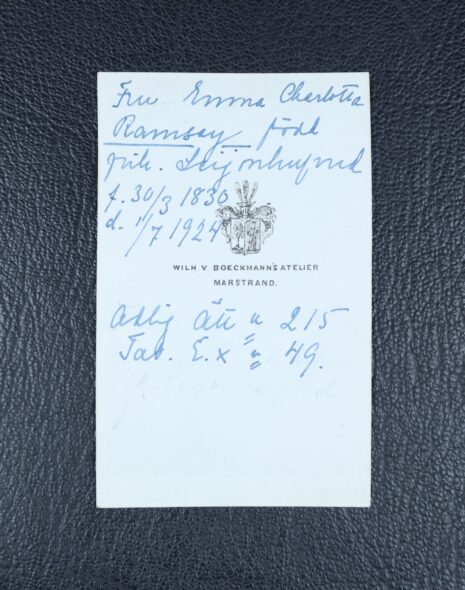 Fru Emma Charlotta
Ramsay född
frih. Leijonhufvud
f. 30/3 1830
d. 1/7 1924
WILH. V. BOECKMANN'S ATELIER
MARSTRAND.
Adlig Ätt " 215
Tav. " 49.